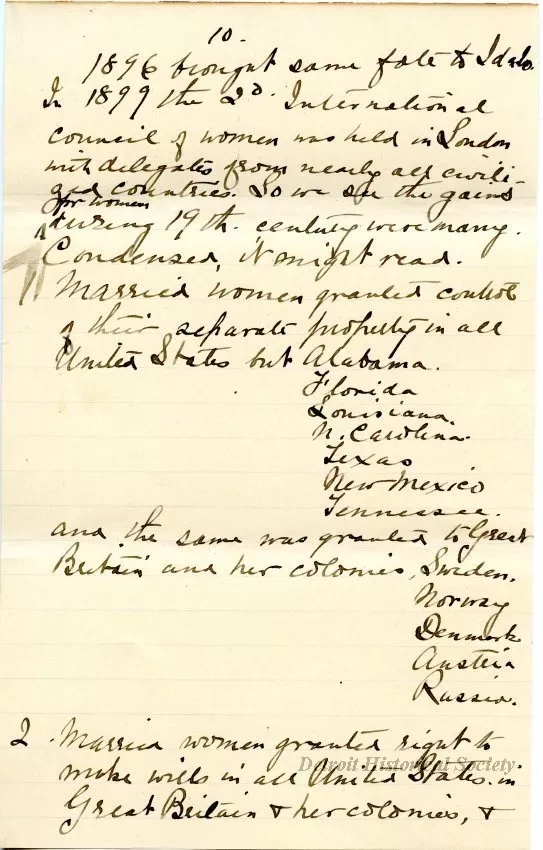 10.
1896 brought same fate to Idaho.
In 1899 the 2d. International
Council of women was held in London
with delegates from nearly all civili-
zed countries. So we see the gains
for women
during 19th. century were many.
Condensed, it might read.
Married women granted control
of their separate property in all
United States but Alabama.
Florida
Louisiana.
N. Carolina.
Texas
New Mexico
Tennessee.
and the same was granted to Great
Britain and her colonies, Sweden.
Norway
Denmark
Austria
Russia.
2. Married women granted right to
make wills in all United States. in
Great Britain & her colonies, &
Detroit Historical Society